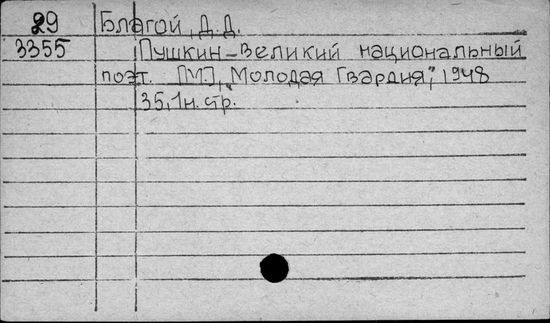 29 Благой, Д.Д.
3355 Пушкин-великий национальный
поэт. [М], "Молодая Гвардия", 1948
35,1н.стр.